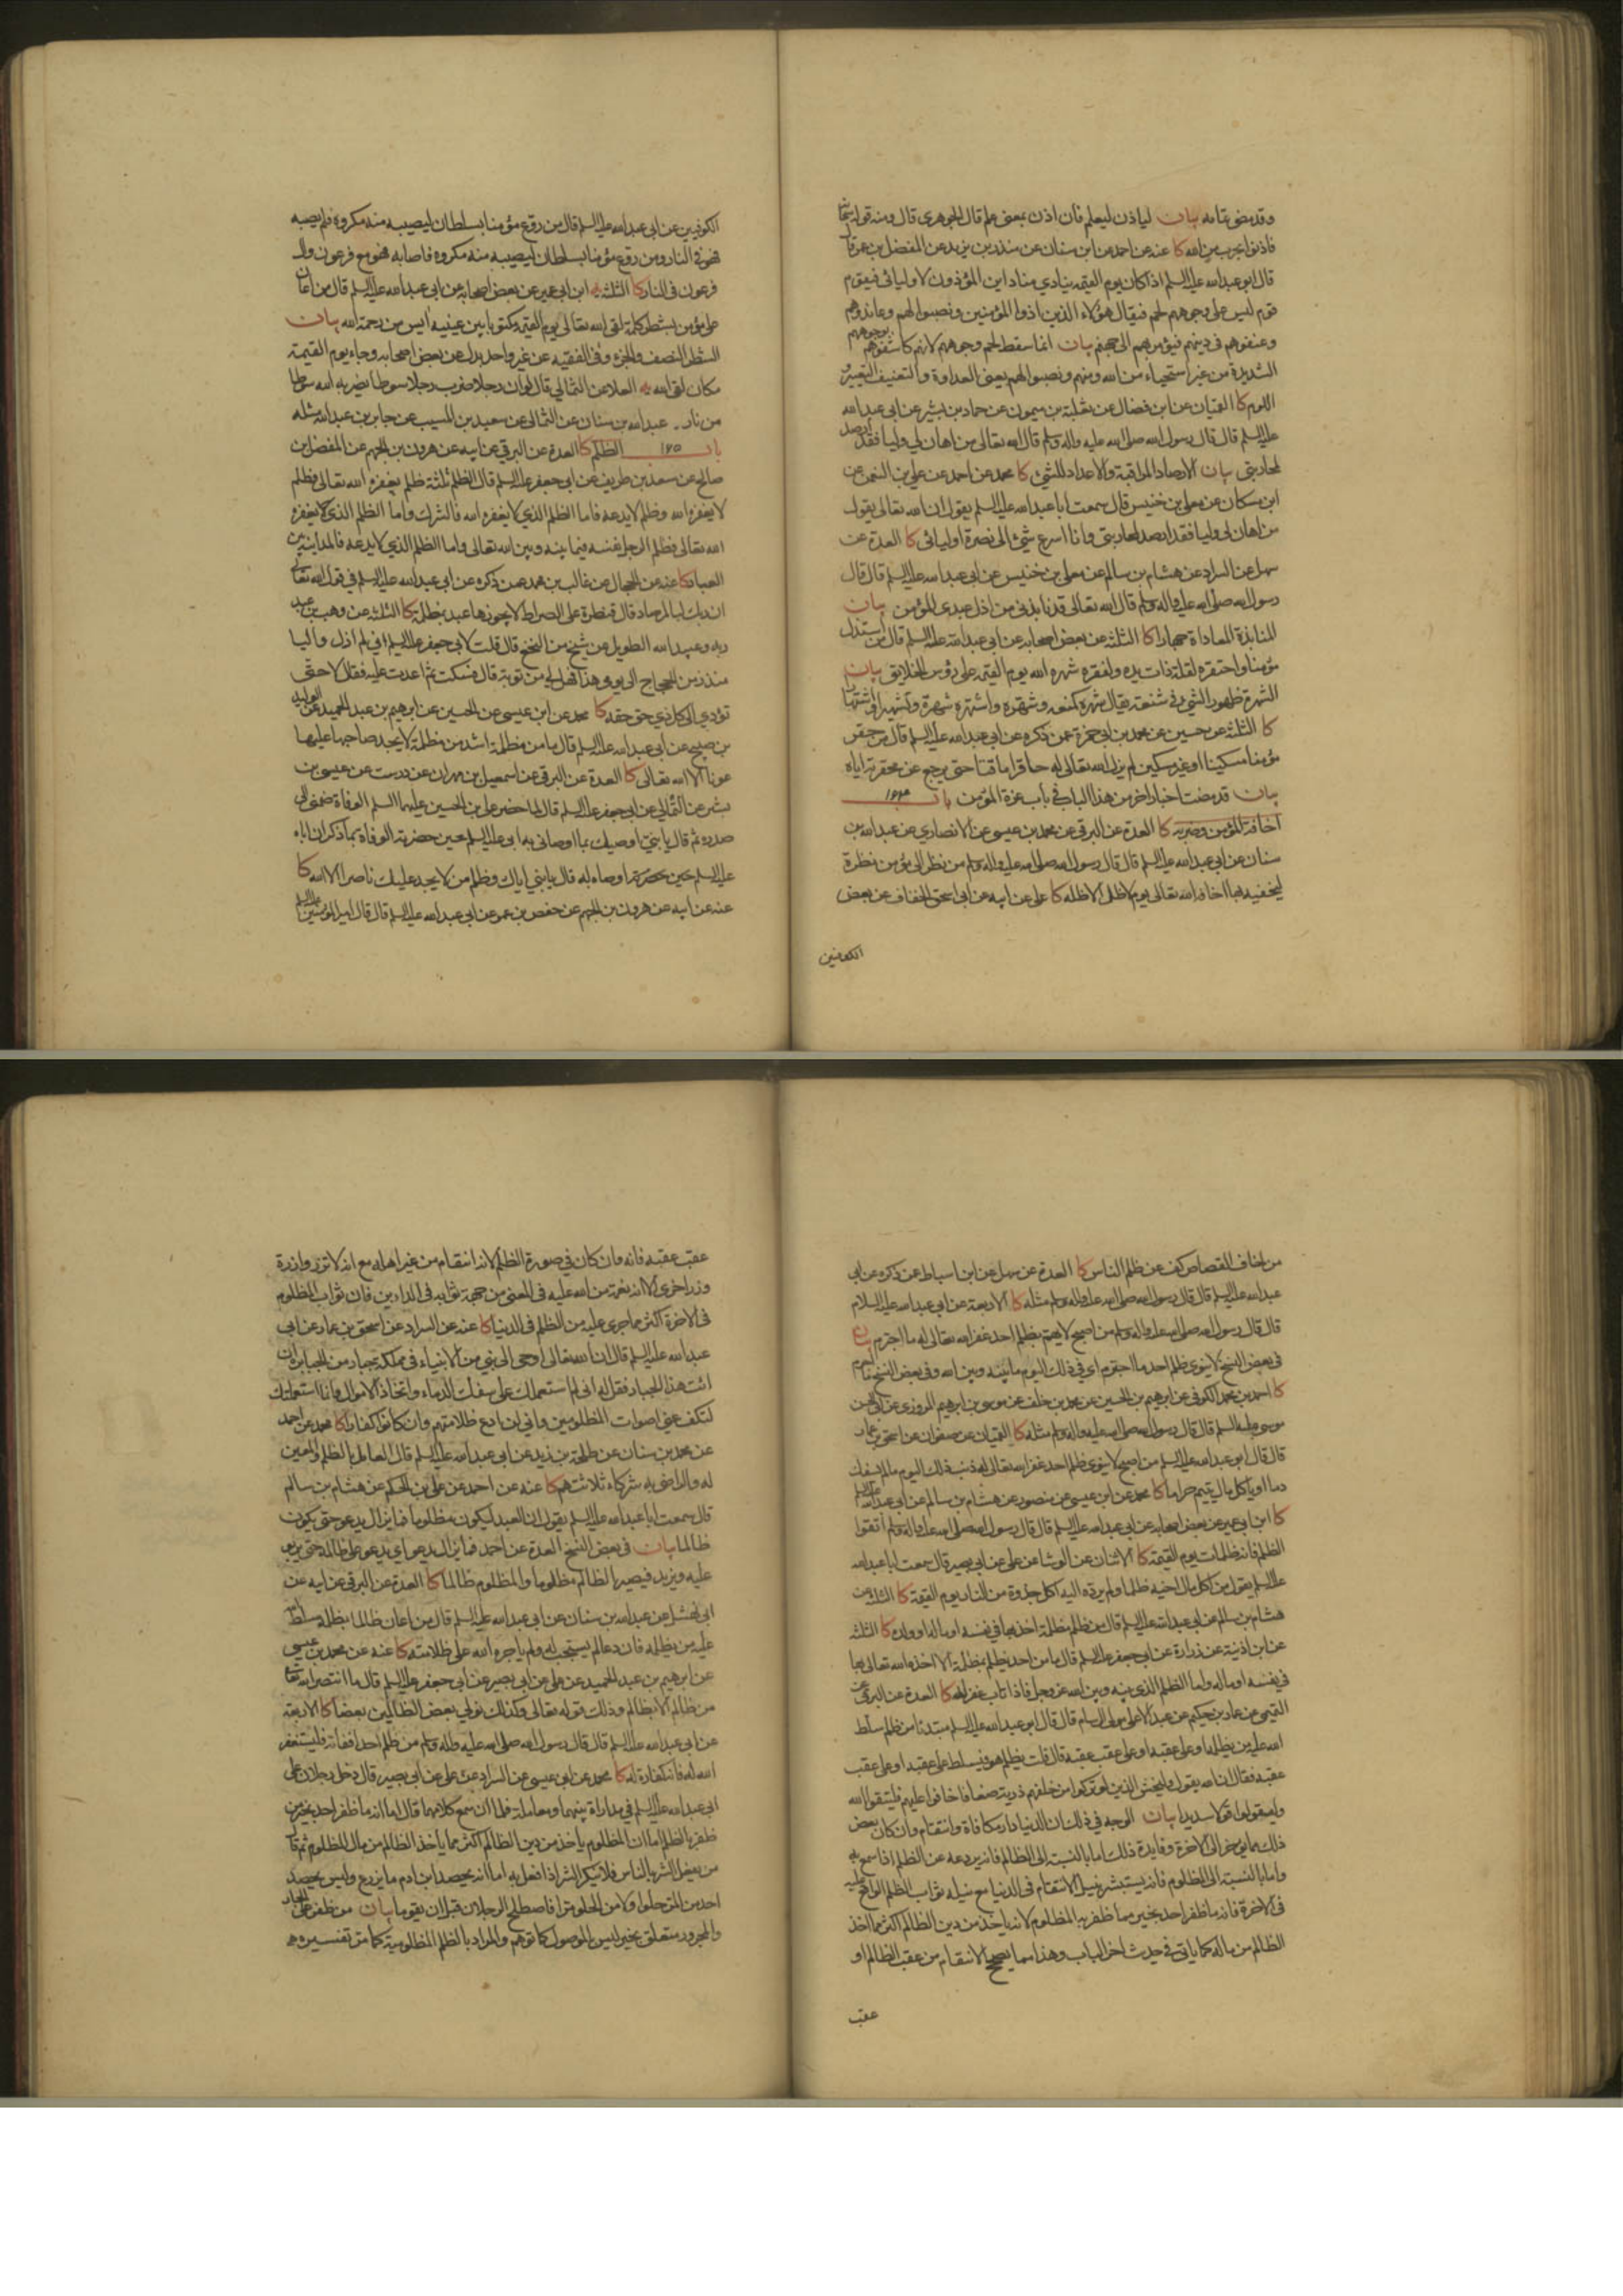 وقد مضى بتمامه بيان لياذن ليعلم فان اذن بمعنى علم قال الجوهري قال ومنه قوله تعالى
فاذنوا بحرب من الله كا عنه عن احمد عن ابن سنان عن منذر بن يزيد عن المفضل بن عمر قال
قال ابو عبد الله عليه السلم اذا كان يوم القيمة ينادي مناد اين المؤذون لاوليائي فيقوم
قوم ليس على وجوههم لحم فيقال هؤلاء الذين اذوا المؤمنين ونصبوا لهم وعاندوهم
وعنفوهم في دينهم فيؤمر بهم الى جهنم بيان انما سقط لحم وجوههم لانهم كاشفوهم بوجوههم
الشديدة من غير استحياء من الله ومنهم ونصبوا لهم يعنى العداوة والتعنيف التعيير و
اللوم كا القميان عن ابن فضال عن ثعلبة بن ميمون عن حماد بن بشير عن ابى عبد الله
عليه السلم قال قال رسول الله صلى الله عليه واله وسلم قال الله تعالى من اهان لي وليا فقد ارصد
لمحاربتى بيان الارصاد المراقبة والاعداد للشئ كا محمد عن احمد عن على بن النعمن عن
ابن مسكان عن معلى بن خنيس قال سمعت ابا عبد الله عليه السلم يقول ان الله تعالى يقول
من اهان لى وليا فقد ارصد لمحاربتى وانا اسرع شئ الى نصرة اوليائى كا العدة عن
سهل عن السراد عن هشام بن سالم عن معلى بن خنيس عن ابى عبد الله عليه السلم قال قال
رسول الله صلى الله عليه واله وسلم قال الله تعالى قد نابذنى من اذل عبدى المؤمن بيان
المنابذة المعاداة جهارا كا الثلثة عن بعض اصحابه عن ابى عبد الله عليه السلم قال من استذل
مؤمنا واحتقره لقلة ذات يده ولفقره شهره الله يوم القيمة على رؤس الخلايق بيان
الشهرة ظهور الشئ في شنعة يقال شهره كمنعه وشهره واشتهره شهرة وتشهيرا واشتهارا
كا الثلثة عن حسين عن محمد بن ابى حمزة عمن ذكره عن ابى عبد الله عليه السلم قال من حقر
مؤمنا مسكينا او غير مسكين لم يزل الله تعالى له حاقرا ماقتا حتى يرجع عن محقرته اياه
بيان قد مضت اخبار اخر من هذا الباب في باب عزة المؤمن باب ١٦٤
اخافة المؤمن وضربه كا العدة عن البرقى عن محمد بن عيسى عن الانصاري عن عبد الله بن
سنان عن ابى عبد الله عليه السلم قال قال رسول الله صلى الله عليه واله وسلم من نظر الى مؤمن نظرة
ليخيفه بها اخافه الله تعالى يوم لاظل الا ظله كا على عن ابيه عن ابى اسحق الخفاف عن بعض
الكوفيين
الكوفيين عن ابى عبد الله عليه السلم قال من روع مؤمنا بسلطان ليصيبه منه مكروه فلم يصبه
فهو في النار ومن روع مؤمنا بسلطان ليصيبه منه مكروه فاصابه فهو مع فرعون وال
فرعون في النار كا الثلثة يه ابن ابى عمير عن بعض اصحابه عن ابى عبد الله عليه السلم قال من اعان
على مؤمن بشطر كلمة لقى الله تعالى يوم القيمة مكتوبا بين عينيه آيس من رحمة الله بيان
الشطر النصف والجزء وفى الفقيه عن غير واحد بدل عن بعض اصحابه وجاء يوم القيمة
مكان لقى الله يه العلا عن الثمالي قال لو ان رجلا ضرب رجلا سوطا لضربه الله سوطا
من نار . عبد الله بن سنان عن الثمالى عن سعيد بن المسيب عن جابر بن عبد الله مثله
باب ١٦٥ الظلم كا العدة عن البرقى عن ابيه عن هرون بن الجهم عن المفضل بن
صالح عن سعد بن طريف عن ابى جعفر عليه السلم قال الظلم ثلثة ظلم يغفره الله تعالى وظلم
لا يغفره الله وظلم لا يدعه فاما الظلم الذي لا يغفره الله فالشرك واما الظلم الذى يغفره
الله تعالى فظلم الرجل نفسه فيما بينه وبين الله تعالى واما الظلم الذي لا يدعه فالمداينة بين
العباد كا عنه عن الحجال عن غالب بن محمد عمن ذكره عن ابى عبد الله عليه السلم في قول الله تعالى
ان ربك لبالمرصاد قال قنطرة على الصراط لا يجوزها عبد بمظلمة كا الثلثة عن وهب بن عبد
ربه وعبيد الله الطويل عن شيخ من النخع قال قلت لابى جعفر عليه السلم انى لم ازل واليا
منذ زمن الحجاج الى يومى هذا فهل لي من توبة قال فسكت ثم اعدت عليه فقال لا حتى
تؤدي الى كل ذي حق حقه كا محمد عن ابن عيسى عن الحسين عن ابرهيم بن عبد الحميد عن الوليد
بن صبيح عن ابى عبد الله عليه السلم قال ما من مظلمة اشد من مظلمة لا يجد صاحبها عليها
عونا الا الله تعالى كا العدة عن البرقى عن اسمعيل بن مهران عن درست عن عيسى بن
بشير عن الثمالي عن ابى جعفر عليه السلم قال لما حضر على بن الحسين عليهما السلم الوفاة ضمنى الى
صدره ثم قال يا بنى اوصيك بما اوصانى به ابى عليه السلم حين حضرته الوفاة بما ذكر ان اباه
عليه السلم حين حضرته اوصاه له قال يا بنى اياك وظلم من لا يجد عليك ناصرا الا الله كا
عنه عن ابيه عن هرون بن الجهم عن حفص بن عمر عن ابى عبد الله عليه السلم قال قال امير المؤمنين عليه السلم
من خاف القصاص كف عن ظلم الناس كا العدة عن سهل عن ابن اسباط عمن ذكره عن ابى
عبد الله عليه السلم قال قال رسول الله صلى الله عليه واله وسلم مثله كا الاربعة عن ابى عبد الله عليه السلام
قال قال رسول الله صلى الله عليه واله وسلم من اصبح لا يهم بظلم احد غفر الله تعالى له ما اجترم بيان
في بعض النسخ لا ينوى ظلم احد ما اجترم اى في ذلك اليوم ما بينه وبين الله وفى بعض النسخ ما اجرم
كا احمد بن محمد الكوفى عن ابرهيم بن الحسين عن محمد بن خلف عن موسى بن ابرهيم المروزى عن ابى الحسن
موسى عليه السلم قال قال رسول الله صلى الله عليه واله وسلم مثله كا القميان عن صفوان عن اسحق بن عمار
قال قال ابو عبد الله عليه السلم من اصبح لا ينوى ظلم احد غفر الله تعالى له ذنب ذلك اليوم ما لم يسفك
دما او ياكل مال يتيم حراما كا محمد عن ابن عيسى عن منصور عن هشام بن سالم عن ابى عبد الله عليه السلم
كا ابن ابى عمير عن بعض اصحابه عن ابى عبد الله عليه السلم قال قال رسول الله صلى الله عليه واله وسلم اتقوا
الظلم فانه ظلمات يوم القيمة كا الاثنان عن الوشا عن على عن ابى بصير قال سمعت ابا عبد الله
عليه السلم يقول من اكل مال اخيه ظلما ولم يرده اليه اكل جذوة من النار يوم القيمة كا الثلثة عن
هشام بن سالم عن ابى عبد الله عليه السلم قال من ظلم مظلمة اخذ بها في نفسه او ماله او ولده كا الثلثة
عن ابن اذينة عن زرارة عن ابى جعفر عليه السلم قال ما من احد يظلم بمظلمة الا اخذه الله تعالى بها
في نفسه او ماله واما الظلم الذي بينه وبين الله عز وجل فاذا تاب غفر له كا العدة عن البرقى عن
التميمى عن عمار بن حكيم عن عبد الاعلى مولى ال سام قال قال ابو عبد الله عليه السلم مبتدئا من ظلم سلط
الله عليه من يظلمه او على عقبه او على عقب عقبه قال قلت يظلم هو فيسلط على عقبه او على عقب
عقبه فقال ان الله يقول وليخش الذين لو تركوا من خلفهم ذرية ضعافا خافوا عليهم فليتقوا الله
وليقولوا قولا سديدا بيان الوجه في ذلك ان الدنيا دار مكافاة وانتقام وان كان بعض
ذلك مما يؤخر الى الاخرة وفايدة ذلك اما بالنسبة الى الظالم فانه يردعه عن الظلم اذا سمع به
واما بالنسبة الى المظلوم فانه يستبشر بنيل الانتقام في الدنيا مع نيله ثواب الظلم الواقع عليه
في الاخرة فانه ما ظفر احد بخير مما ظفر به المظلوم لانه ياخذ من دين الظالم اكثر مما اخذ
الظالم من ماله كما ياتى في حديث اخر الباب وهذا مما يصحح الانتقام من عقب الظالم او
عقب
عقب عقبه فانه وان كان في صورة الظلم لانه انتقام من غير اهله مع انه لا تزر وازرة
وزر اخرى الا انه نعمة من الله عليه في المعنى من جهة ثوابه في الدارين فان ثواب المظلوم
في الاخرة اكثر مما جرى عليه من الظلم في الدنيا كا عنه عن السراد عن اسحق بن عمار عن ابى
عبد الله عليه السلم قال ان الله تعالى اوحى الى نبى من الانبياء في مملكة جبار من الجبابرة ان
ائت هذا الجبار فقل له انى لم استعملك على سفك الدماء واتخاذ الاموال وانما استعملتك
لتكف عنى اصوات المظلومين وانى لن ادع ظلامتهم وان كانوا كفارا كا محمد عن احمد
عن محمد بن سنان عن طلحة بن زيد عن ابى عبد الله عليه السلم قال العامل بالظلم والمعين
له والراضى به شركاء ثلاثتهم كا عنه عن احمد عن على بن الحكم عن هشام بن سالم
قال سمعت ابا عبد الله عليه السلم يقول ان العبد ليكون مظلوما فما يزال يدعو حتى يكون
ظالما بيان في بعض النسخ العدة عن احمد فما يزال يدعو اي يدعو على ظالمه حتى يربى
عليه ويزيد فيصير الظالم مظلوما والمظلوم ظالما كا العدة عن البرقى عن ابيه عن
ابى نهشل عن عبد الله بن سنان عن ابى عبد الله عليه السلم قال من اعان ظالما بظلمه سلط الله
عليه من يظلمه فان دعا لم يستجب له ولم ياجره الله على ظلامته كا عنه عن محمد بن عيسى
عن ابرهيم بن عبد الحميد عن على عن ابى بصير عن ابى جعفر عليه السلم قال ما انتصر الله تعالى
من ظالم الا بظالم وذلك قوله تعالى وكذلك نولي بعض الظالمين بعضا كا الاربعة
عن ابى عبد الله عليه السلم قال قال رسول الله صلى الله عليه واله وسلم من ظلم احدا ففاته فليستغفر
الله له فانه كفارة له كا محمد عن ابن عيسى عن السراد عن على عن ابى بصير قال دخل رجلان على
ابى عبد الله عليه السلم في مداراة بينهما ومعاملة فلما ان سمع كلامهما قال اما انه ما ظفر احد بخير من
ظفر بالظلم اما ان المظلوم ياخذ من دين الظالم اكثر مما ياخذ الظالم من مال المظلوم ثم قال
من يفعل الشر بالناس فلا ينكر الشر اذا فعل به اما انه يحصد ابن ادم ما يزرع وليس يحصد
احد من المر حلوا ولا من الحلو مرا فاصطلح الرجلان قبل ان يقوما بيان من ظفر على الجار
والمجرور متعلق بخير ليس بالموصول كما توهم والمراد بالظلم المظلومية كما مر تفسيره